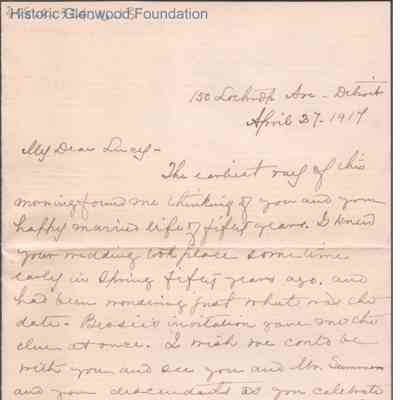 Historic Glenwood Foundation
150 Lothrop Ave - Detroit
April 27-1917
My Dear Lucy -
The earliest ray of this
morning found me thinking of you and your
happy married life of fifty years. I knew
your wedding took place some time
early in Spring fifty years ago, and
had been wondering just what was the
date - invitation gave me the
clue at once. I wish we could be
with you and see you and Mr.
and your descendants as you celebrate